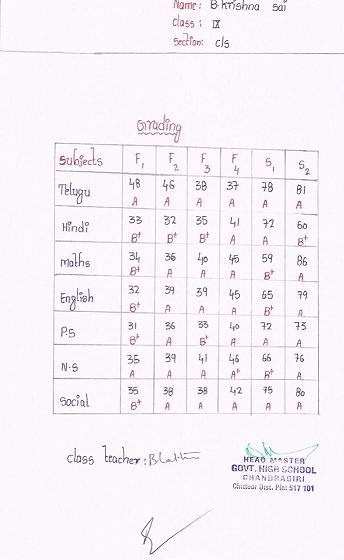 Name: B. Krishna Sai
Class: IX
Section: C/S
Grading
Subjects F1 F2 F3 F4 S1 S2
Telugu 48 46 38 37 78 81
A A A A A A
Hindi 33 32 35 41 72 60
B+ B+ B+ A A B+
Maths 34 36 40 45 59 86
B+ A A A B+ A
English 32 39 39 45 65 79
B+ A A A B+ A
P.S 31 36 33 40 72 73
B+ A B+ A A A
N.S 35 39 41 46 66 76
A A A A+ B+ A
Social 35 38 38 42 75 80
B+ A A A A A
class teacher:
HEAD MASTER
GOVT. HIGH SCHOOL
CHANDRAGIRI
Chittoor Dist. Pin: 517 101